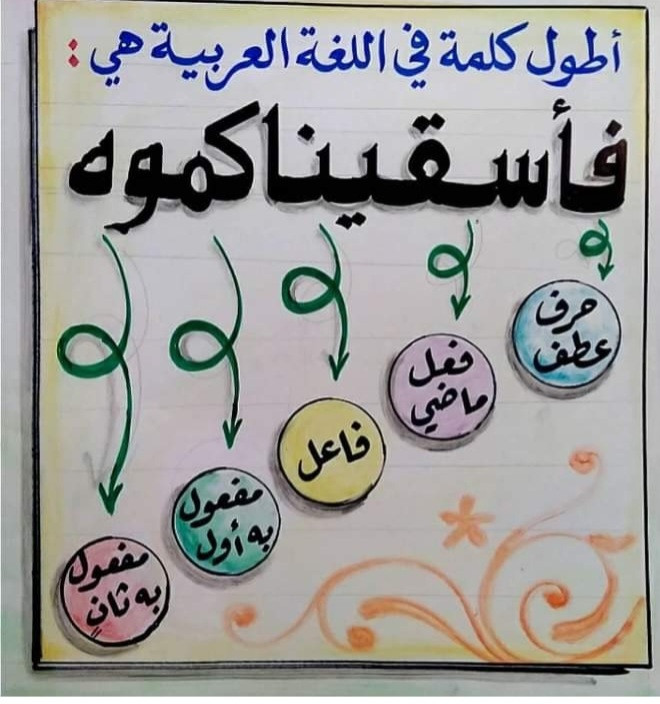 أطول كلمة في اللغة العربية هي:
فأسقيناكموه
حرف
عطف
فعل
ماضي
فاعل
مفعول
به أول
مفعول
به ثانٍ